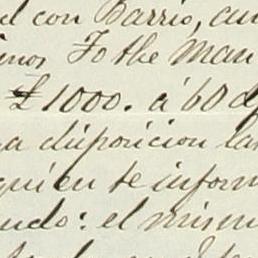 el con Barrio, au
inos Fo the Man
£1000. á 60 d
a disposicion la
quien te inform
ndo: el mism